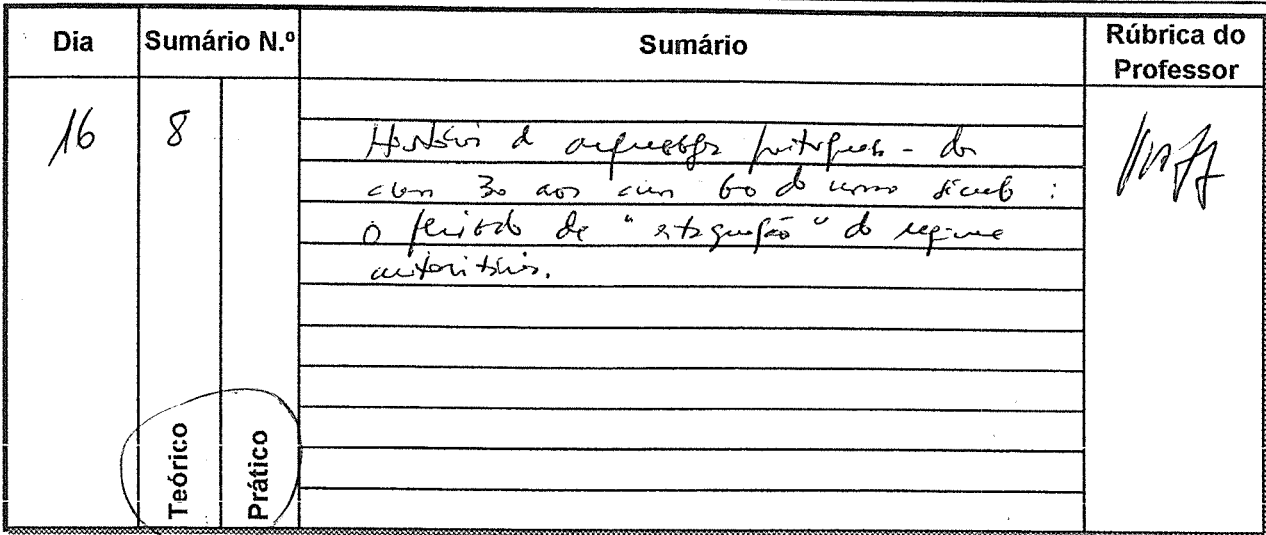 Dia Sumário N.º Sumário Rúbrica do
Professor
16 8
História d portuguesa - dos
anos 30 aos anos 60 do nosso século :
o período de "estagnação" do regime
autoritário.
Teórico Prático